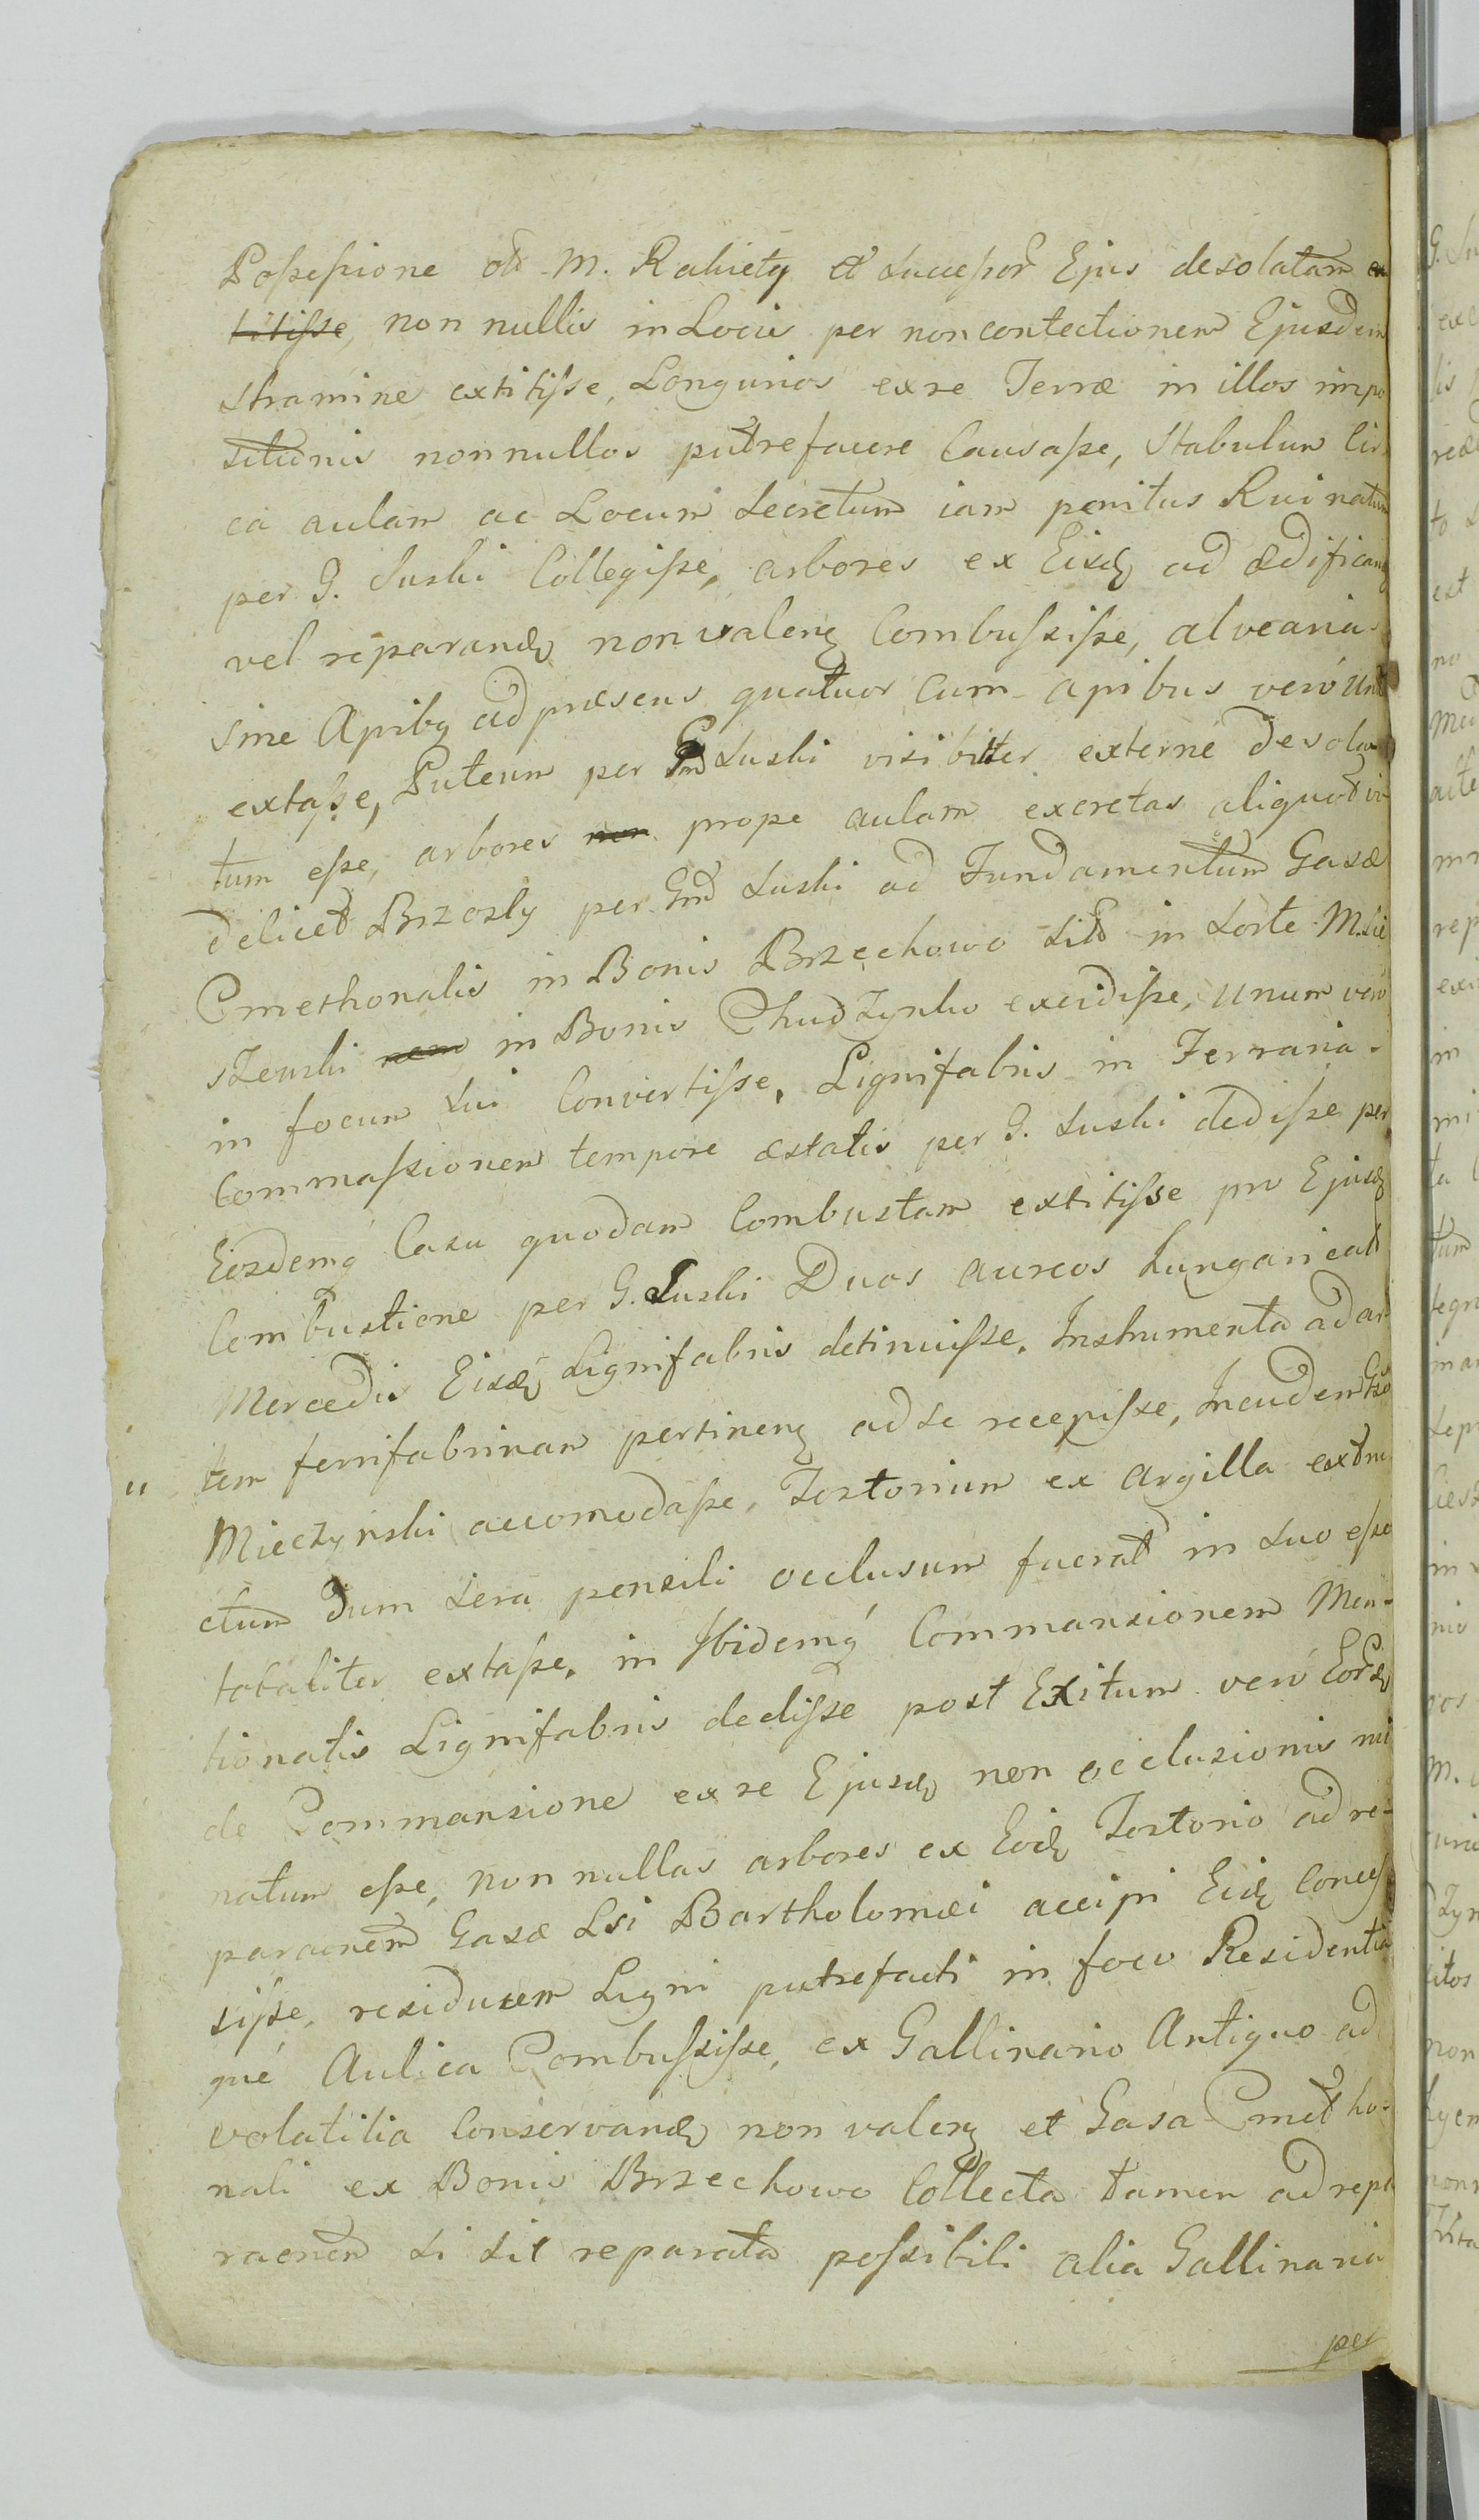 Possessione olim M. Rakiety et Successor Ejus desolatam ex
titisse, non nullis in Locis per non contectionem Ejusdem
stramine extitisse, Longurios ex re Terræ in illos impo
sitionis nonnullos putrefacere Causasse, Stabulum Cir
ca aulam ac Locum Secretum iam penitus Ruinatum
per G. Suski Collegisse, arbores ex Eisdq ad ædificand
vel reparandq non valenq Combussisse, alvearia
sine Apibq ad præsens quatuor cum apibus vero Un
extasse, Puteum per Gnd Suski visibiliter externe desola
tum esse, arbores non prope aulam excretas aliquot vi
delicet Brzosty per Gnd Suski ad Fundamentum Casæ
Cmethonalis in Bonis Brzechowo Sit in Sorte M. Mie
szenski in Bonis Chudzynko excidisse, unum vero
in focum Sui Convertisse, Lignifabris in Ferraria
Commassionem tempore æstatis per G. Suski dedisse per
Eosdemq Casu quodam Combustam extitisse pro Ejusdq
Combustione per G. Suski Duos aureos hungarical
Mercedis Eisdq Lignifabris detinuisse, Instrumenta ad ar
" tem ferrifabrinam pertinenq ad se recepisse, Incudem Gso
Mieczynski accomodasse, Tostorium ex argilla extru
ctum dum Sera pensili occlusum fuerat in Suo esse
totaliter extasse, in Ibidemq Commansionem Men-
tionatis Lignifabris dedisse post Exitum vero Eordq
de Commansione ex re Ejusdq non occlusionis rui
natum esse, non nullas arbores ex Eodq Tostorio ad re-
paraonem Casæ Lsi Bartholomæi accipi Eidq Conces
sisse, residuum Ligni putrefacti in foco Residentia
que Aulica Combussisse, ex Gallinario Antiquo ad
volatilia Conservandq non valenq et Casa Cmetho-
nali ex Bonis Brzechowo Collecta tamen ad repa
raonem si sit reparata possibili alia Gallinaria
per